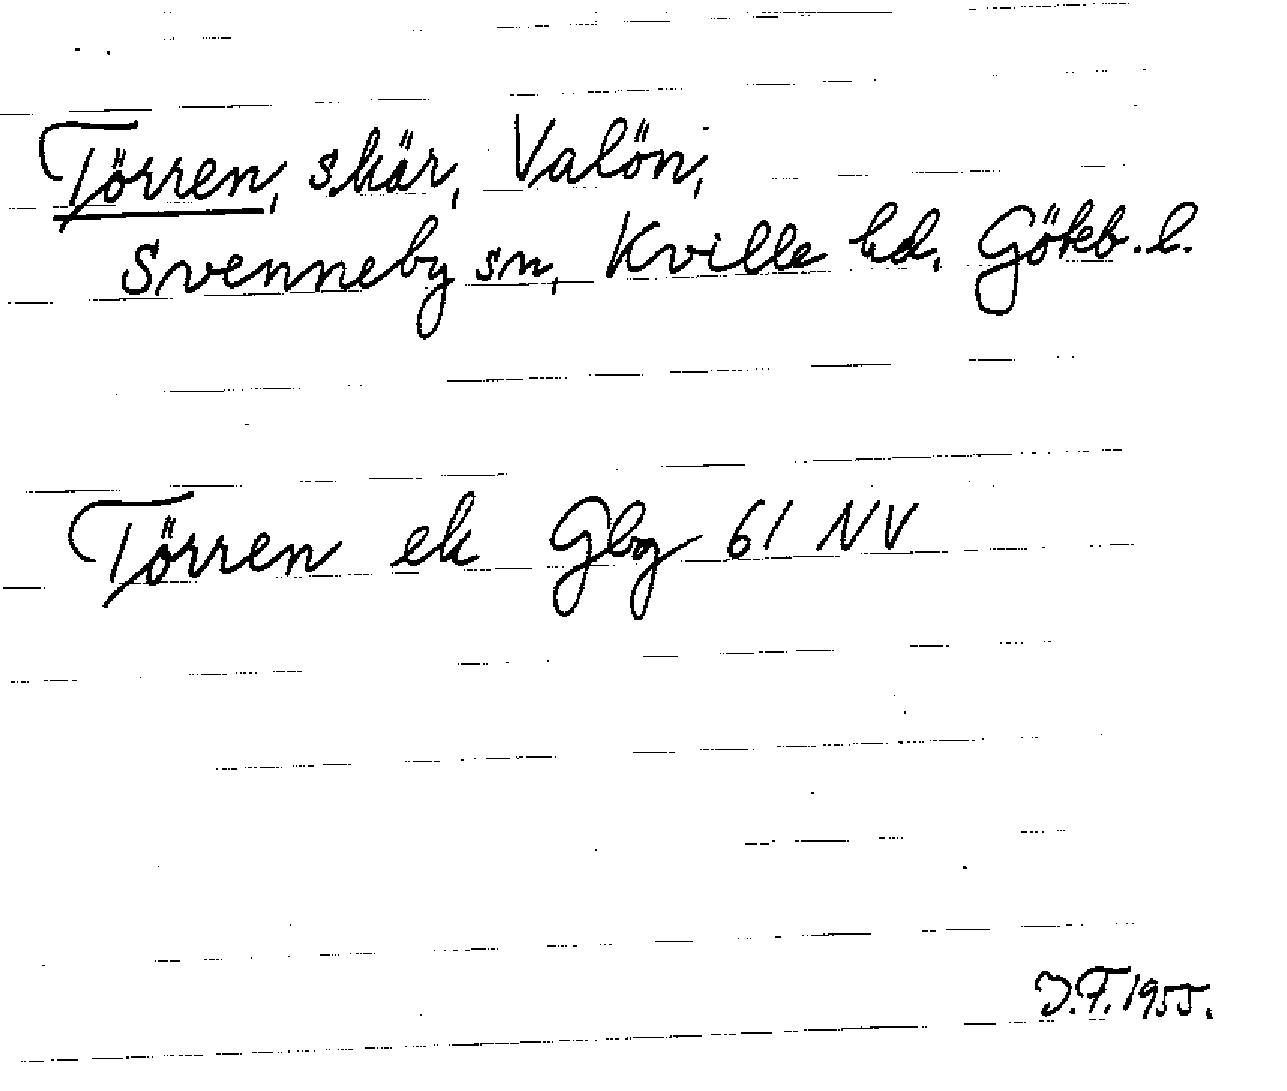 Törren, skär, Valön,
Svenneby sn, Kville hd. Gökb. l.
Törren ek Gbg 61 NV
J.F. 1955.